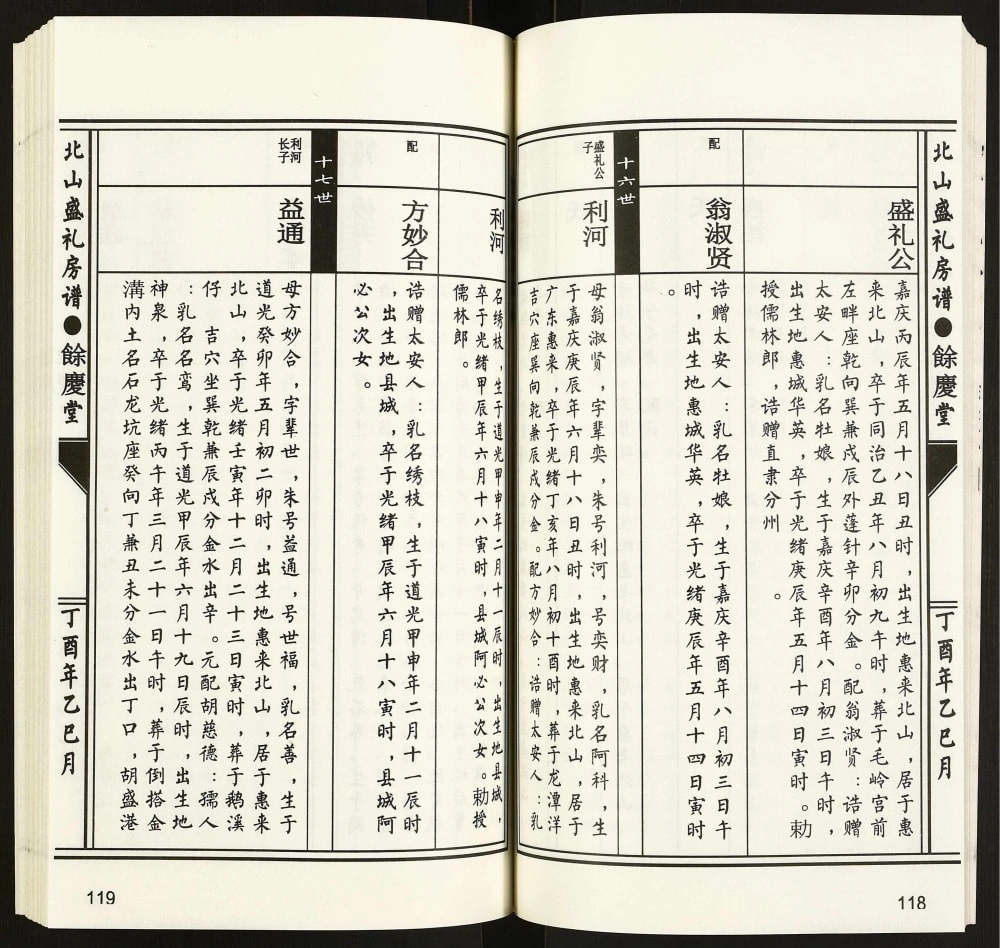 北山盛礼房谱●餘慶堂
丁酉年乙巳月
盛礼公
嘉庆丙辰年五月十八日丑时，出生地惠来北山，居于惠
来北山，卒于同治乙丑年八月初九午时，葬于毛岭宫前
左畔座乾向巽兼戌辰外蓬针辛卯分金。配翁淑贤：诰赠
太安人：乳名牡娘，生于嘉庆辛酉年八月初三日午时，
出生地惠城华英，卒于光绪庚辰年五月十四日寅时。勅
授儒林郎，诰赠直隶分州。
配
翁淑贤
诰赠太安人：乳名牡娘，生于嘉庆辛酉年八月初三日午
时，出生地惠城华英，卒于光绪庚辰年五月十四日寅时
。
十六世
盛礼公
子
利河
母翁淑贤，字辈奕，朱号利河，号奕财，乳名阿科，生
于嘉庆庚辰年六月十八日丑时，出生地惠来北山，居于
广东惠来，卒于光绪丁亥年八月初十酉时，葬于龙潭洋
吉穴座巽向乾兼辰戌分金。配方妙合：诰赠太安人：乳
118
利河
名绣枝，生于道光甲申年二月十一辰时，出生地县城，
卒于光绪甲辰年六月十八寅时，县城阿必公次女。勅授
儒林郎。
配
方妙合
诰赠太安人：乳名绣枝，生于道光甲申年二月十一辰时
，出生地县城，卒于光绪甲辰年六月十八寅时，县城阿
必公次女。
十七世
利河
长子
益通
母方妙合，字辈世，朱号益通，号世福，乳名善，生于
道光癸卯年五月初二卯时，出生地惠来北山，居于惠来
北山，卒于光绪壬寅年十二月二十三日寅时，葬于鹅溪
仔 吉穴坐巽乾兼辰戌分金水出辛。元配胡慈德：孺人
：乳名名鸾，生于道光甲辰年六月十九日辰时，出生地
神泉，卒于光绪丙午年三月二十一日午时，葬于倒搭金
溝内土名石龙坑座癸向丁兼丑未分金水出丁口，胡盛港
北山盛礼房谱●餘慶堂
丁酉年乙巳月
119